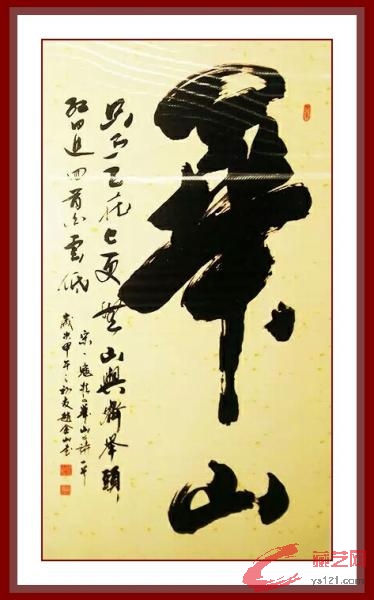 華山
只有天在上更無山與齊舉頭
紅日近回首白雲低
宋·寇準華山詩一首
歲次甲午之初夏趙金山書
藏艺网
ys121.com